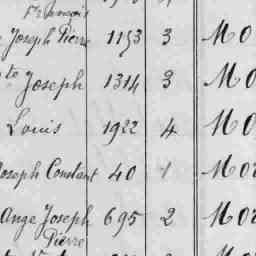 Joseph Pierre 1153 3 Mo
te Joseph 1314 3 Mo
Louis 1922 4 Mo
Joseph Constant 40 1 Mor
Ange Joseph 695 2 Mor
Pierre